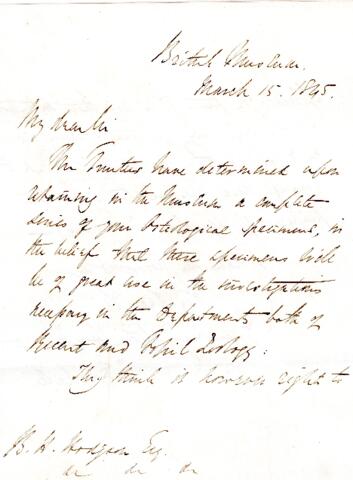 British Museum.
March 15. 1845.
My dear Sir
The Trustees have determined upon
retaining in the Museum a complete
series of your Osteological Specimens, in
the belief that these specimens will
be of great use in the investigations
necessary in the Departments both of
Recent and Fossil Zoology:
They think it however right to
B. H. Hodgson Esq.
&c &c &c